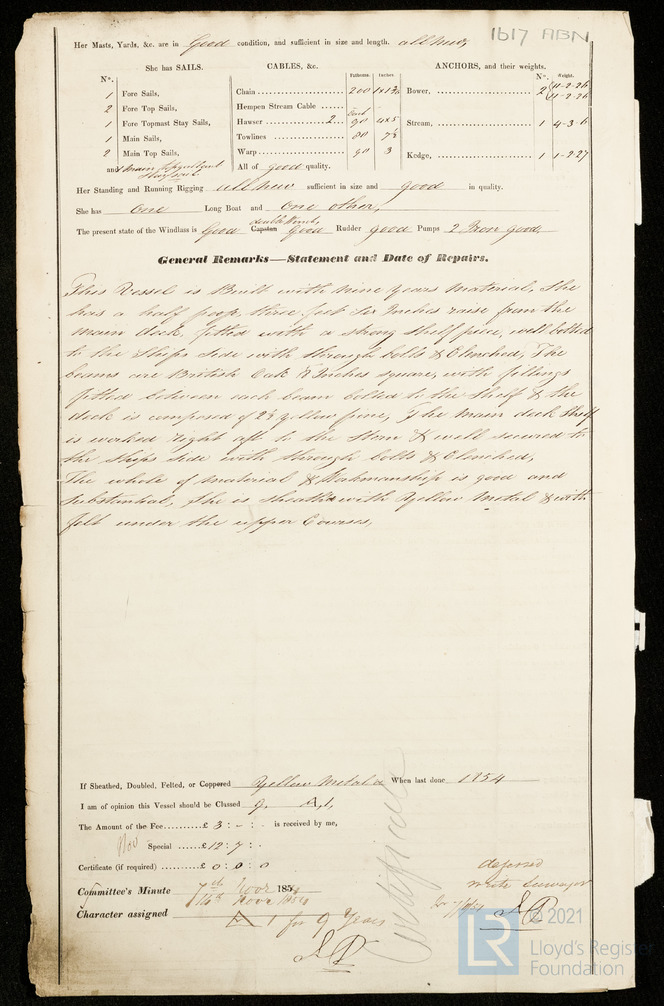 1617 ABN
Her Masts, Yards, &c. are in Good condition, and sufficient in size and length. all new
She has SAILS. CABLES, &c. ANCHORS, and their weights.
Nº. Fathoms. Inches Nº. Weight.
1 Fore Sails, Chain 200 Bower, 2 11-2-26
11-2-26
2 Fore Top Sails, Hempen Stream Cable
1 Fore Topmast Stay Sails, Hawser 2 90 4x5 Stream, 1 4-3-6
1 Main Sails, Towlines 80 7½
2 Main Top Sails, Warp 90 3 Kedge, 1 1-2-27
and Main All of good quality.
Her Standing and Running Rigging all new sufficient in size and good in quality.
She has One Long Boat and One other,
The present state of the Windlass is Good Capstan Good Rudder good Pumps 2 Iron good
General Remarks—Statement and Date of Repairs.
This Vessel is Built with Nine Years Material, She
has a half poop three feet six Inches raise from the
Main deck, fitted with a strong Shelf piece, well bolted
to the Ships Side with through bolts & Clenched, The
beams are British Oak 8 Inches square, with fillings
fitted between each beam bolted to the Shelf & the
deck is composed of 2½ yellow pine, The Main deck Shelf
is worked right aft to the Stern & well secured to
the Ships Side with through bolts & Clenched,
The whole of Material & Workmanship is good and
Substantial, She is sheath'd with Yellow Metal & with
felt under the upper Courses,
If Sheathed, Doubled, Felted, or Coppered Yellow Metal'd When last done 1854
I am of opinion this Vessel should be Classed 9. A,1,
The Amount of the Fee £ 3 : - : - is received by me,
Special £ 12 : 7 : -
Certificate (if required) £ 0 : 0 : 0
Certificate
deferred
write Surveyor
Committee's Minute 7th Novr 1854
14th Novr 1854
Character assigned A 1 for 9 Years
© 2021
LR
Lloyd's Register
Foundation